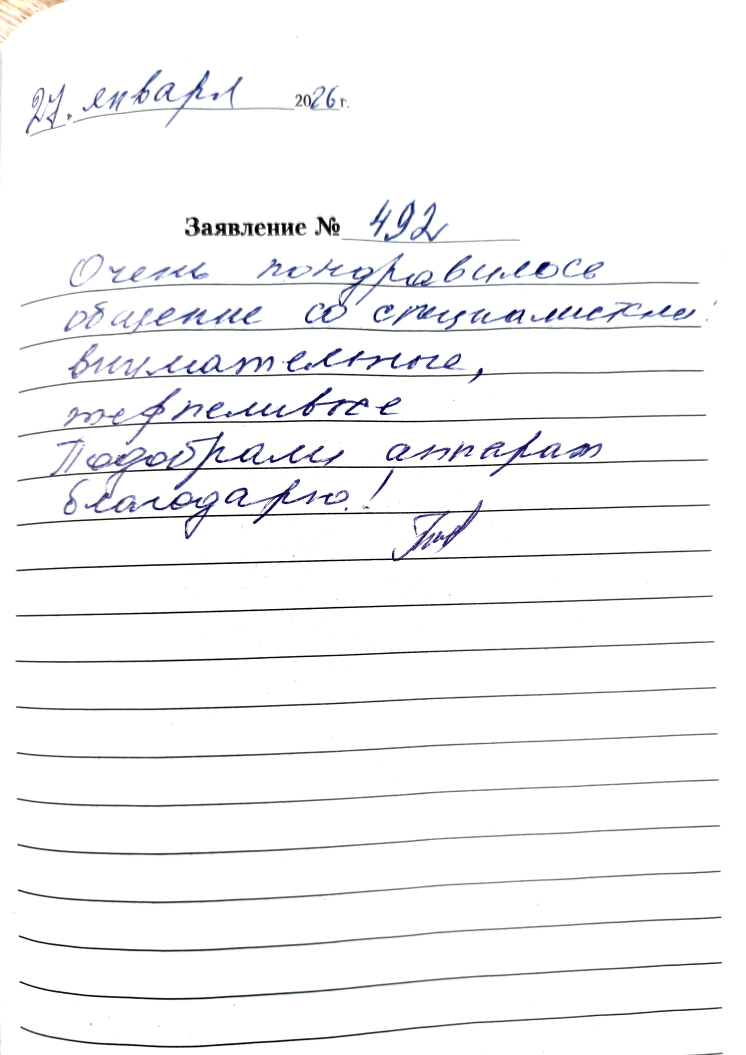 27. января 2026 г.
Заявление № 492
Очень пондравилось
общение со специалистами:
внимательные,
терпеливые
Подобрали аппарат
благодарю!